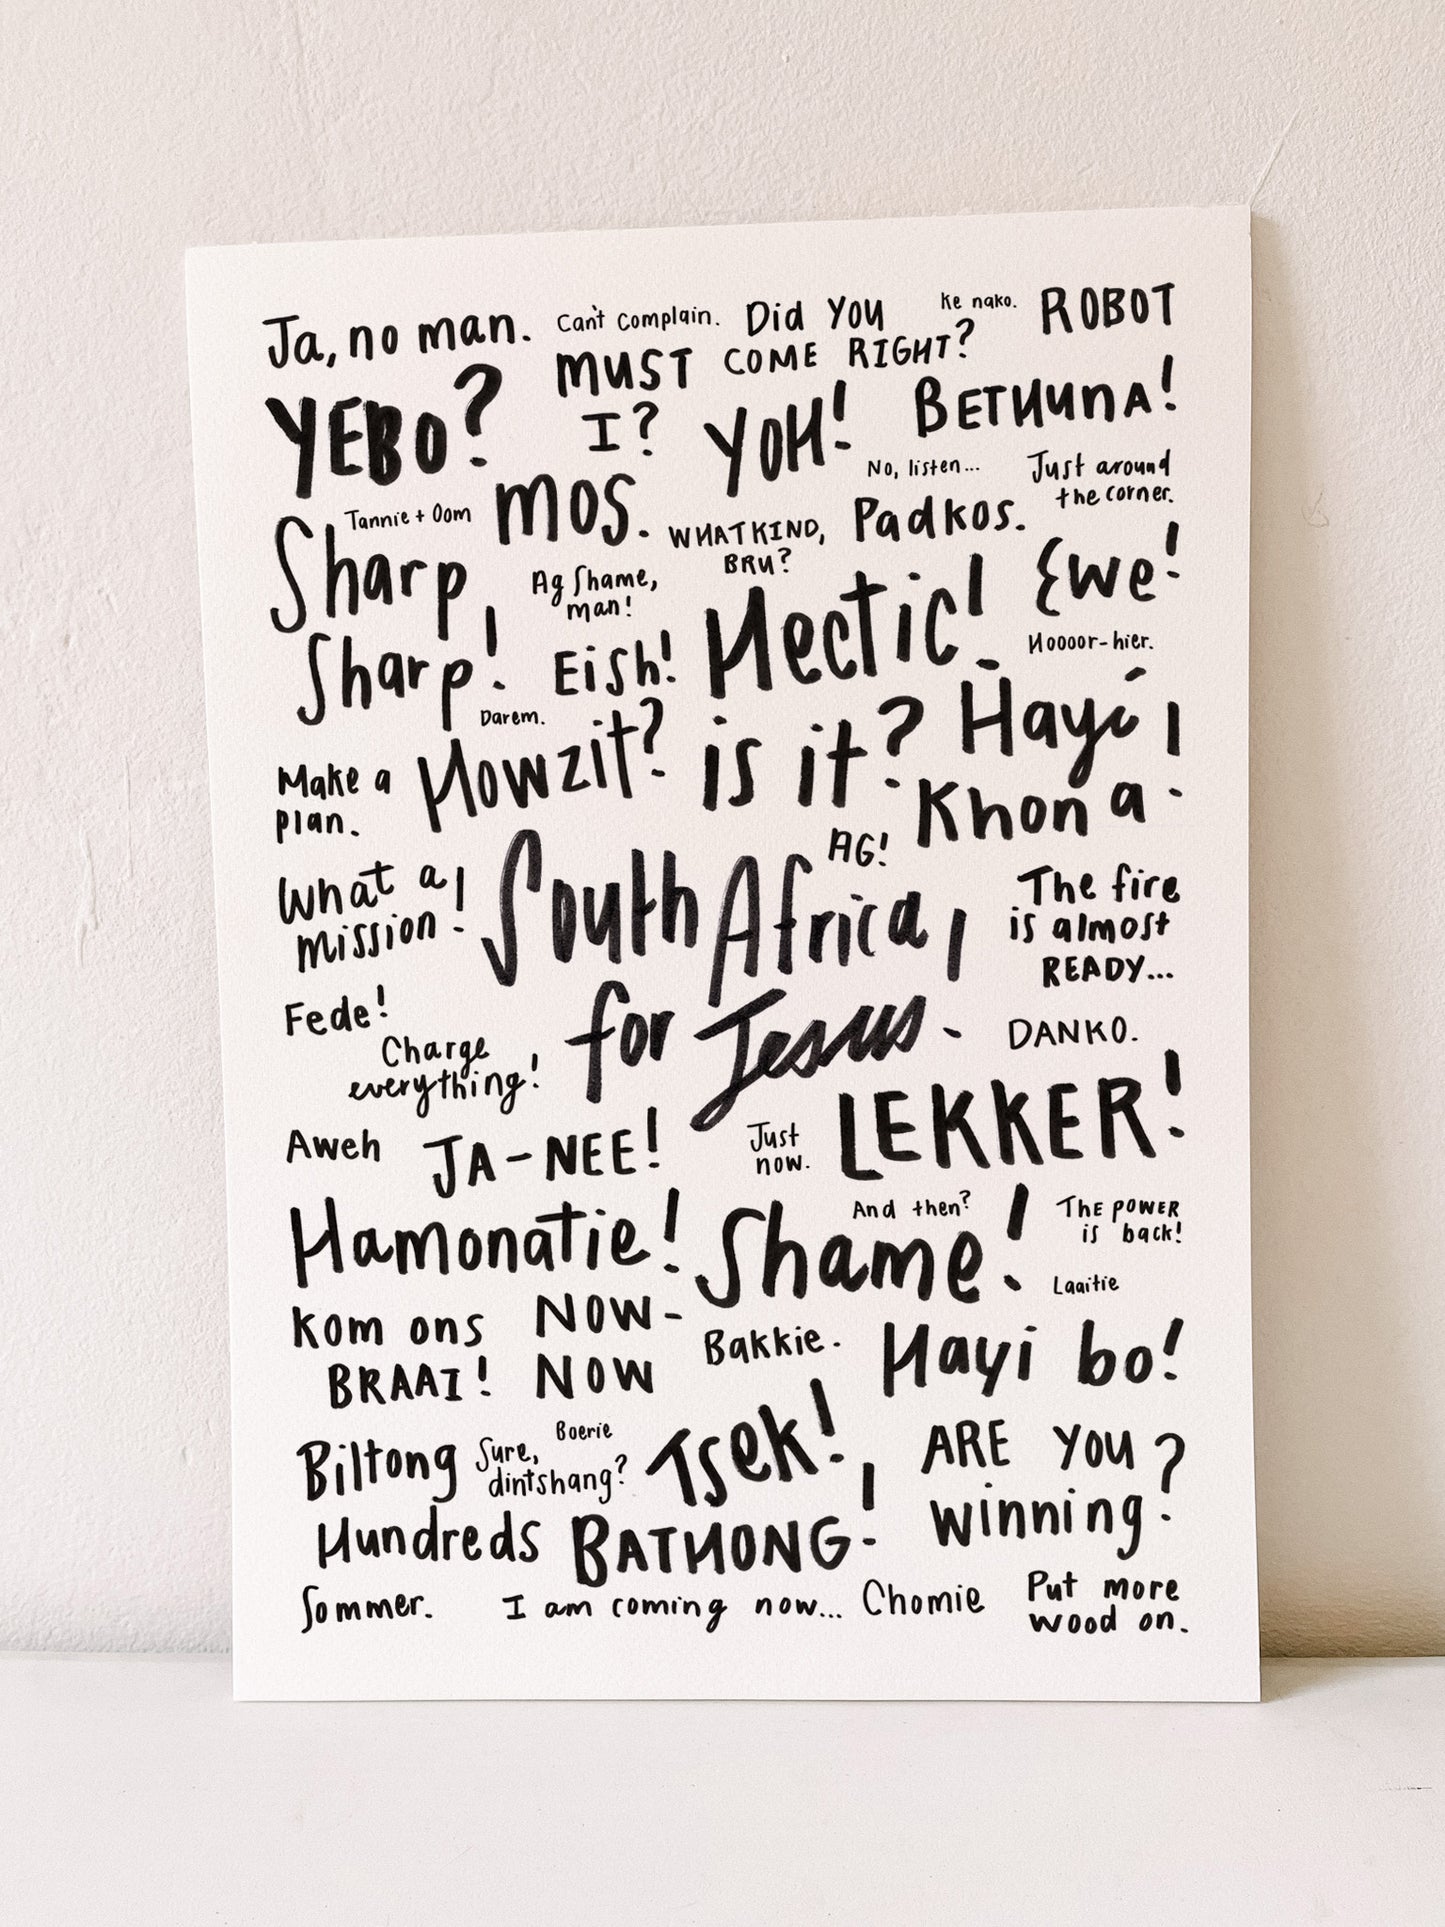 Ja, no man.
Can't complain.
Did you
ke nako.
ROBOT
YEBO?
MUST COME RIGHT?
I?
YOH!
BETHUNA!
No, listen...
Just around
the corner.
Tannie + Oom
MOS.
WHATKIND,
BRU?
Padkos.
Sharp,
Sharp!
Ag Shame,
man!
Hectic!
Ewe!
Hoooor-hier.
Eish!
Darem.
Howzit?
is it?
Hayi
Khona!
Make a
plan.
AG!
What a
mission!
South Africa,
for Jesus.
The fire
is almost
READY...
Fede!
Charge
everything!
DANKO.
Aweh
JA-NEE!
Just
now.
LEKKER!
Hamonatie!
Shame!
And then?
The POWER
is back!
Laaitie
kom ons
BRAAI!
NOW-
NOW
Bakkie.
Hayi bo!
Biltong
Sure,
dintshang?
Boerie
Tsek!
ARE YOU
winning?
Hundreds
BATHONG!
Sommer.
I am coming now...
Chomie
Put more
wood on.